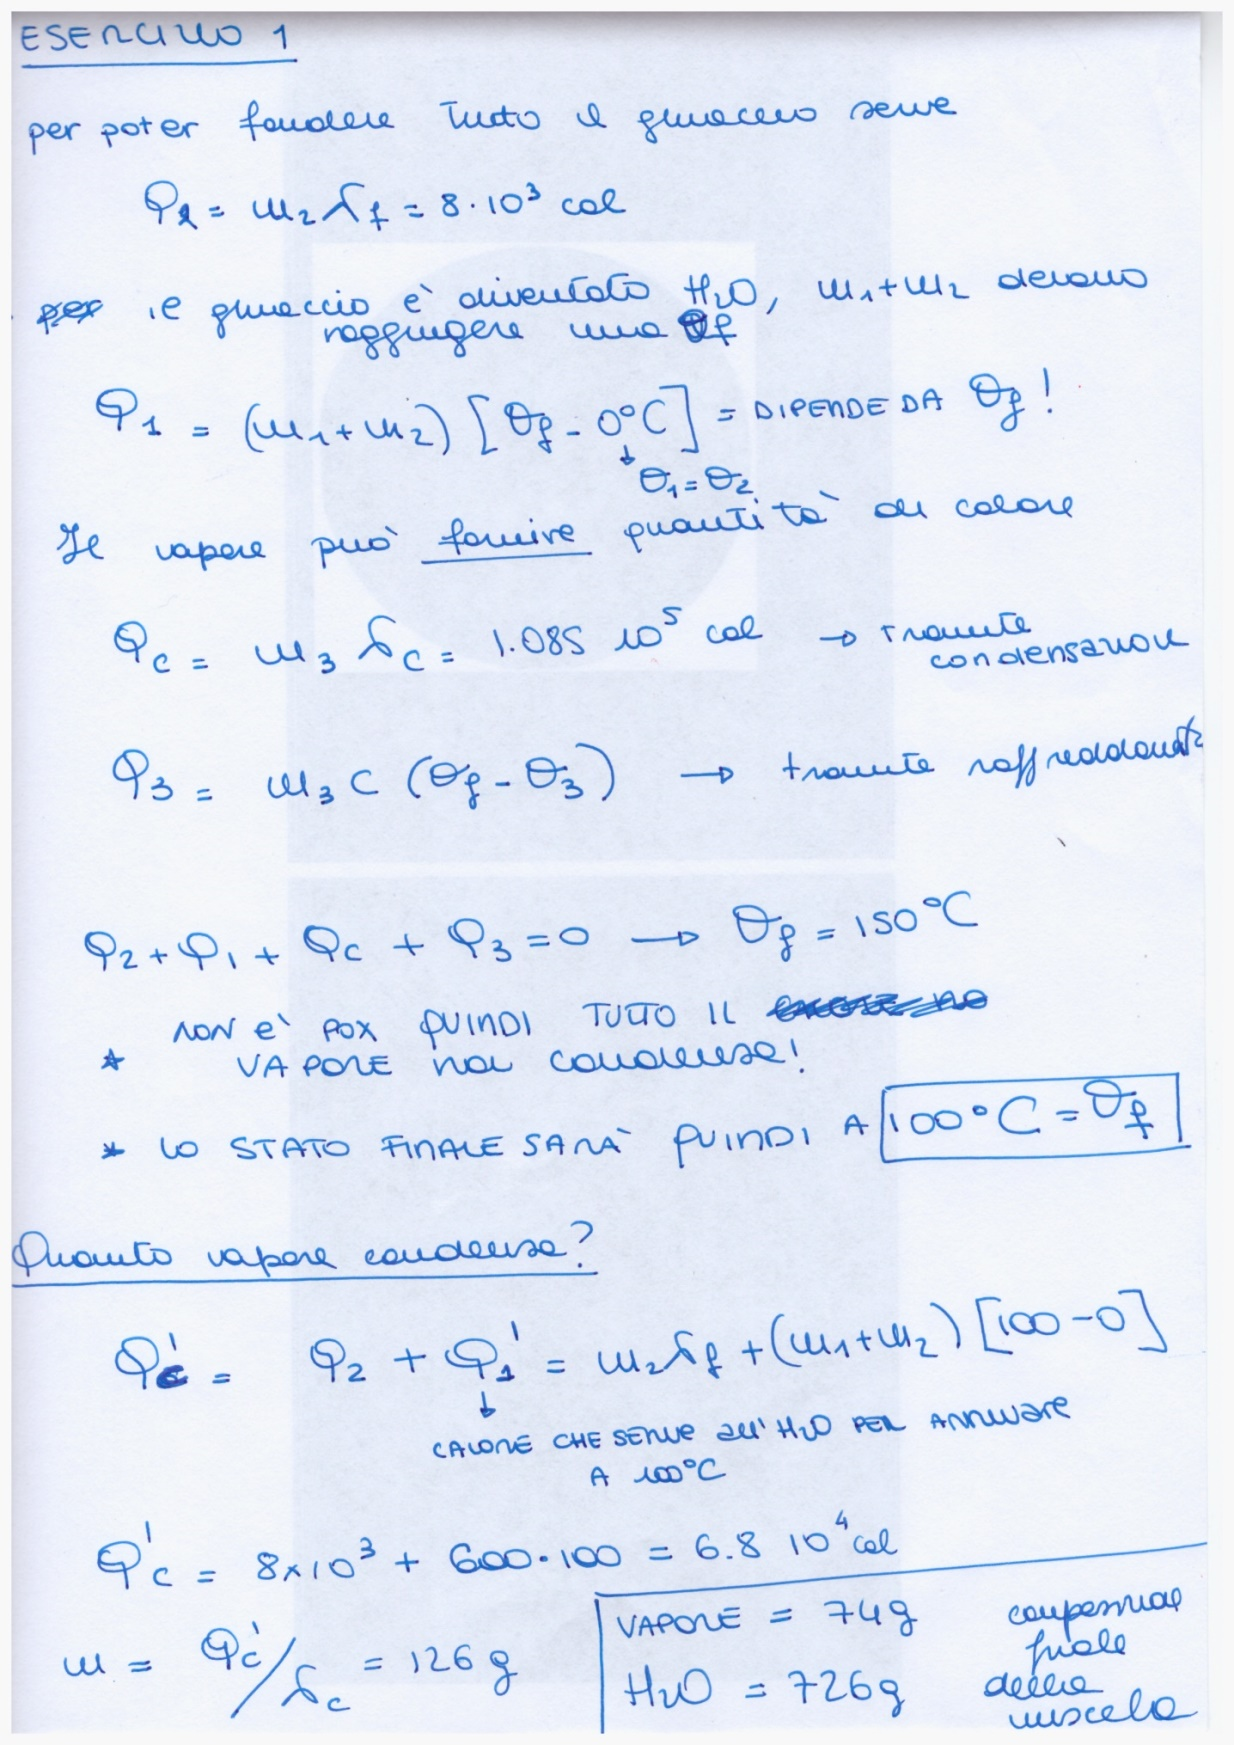 ESERCIZIO 1
per poter fondere tutto il ghiaccio serve
Q2 = m2 λf = 8·10³ cal
per il ghiaccio è diventato H2O, m1+m2 devono
raggiungere una θf
Q1 = (m1+m2) [θf - 0°C] = DIPENDE DA θf!
↓
θ1=θ2
Il vapore può fornire quantità di calore
Qc = m3 λc = 1.085 10⁵ cal → tramite
condensazione
Q3 = m3 c (θf - θ3) → tramite raffreddamento
Q2 + Q1 + Qc + Q3 = 0 → θf = 150°C
NON è POX QUINDI TUTTO IL
* VAPORE non condensa!
* LO STATO FINALE SARÀ QUINDI A 100°C = θf
Quanto vapore condensa?
Qc' = Q2 + Q1' = m2λf + (m1+m2) [100-0]
↓
CALORE CHE SERVE all'H2O PER ARRIVARE
A 100°C
Q'c = 8x10³ + 600·100 = 6.8 10⁴ cal
m = Qc'/λc = 126 g
VAPORE = 74g
H2O = 726g
composizione
finale
della
miscela